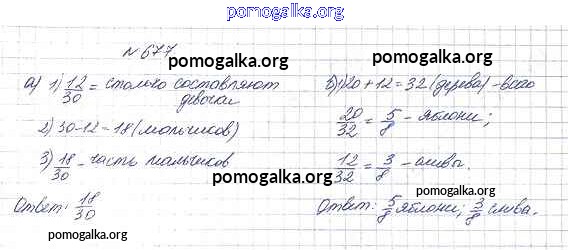 pomogalka.org
pomogalka.org
N 677
pomogalka.org
а) 1) 12/30 = столько составляют
девочки
2) 30-12=18 (мальчиков)
3) 18/30 - часть мальчиков
pomogalka.org
Ответ: 18/30
pomogalka.org
pomogalka.org
б) 1) 20+12=32 (дерева) - всего
20/32 = 5/8 - яблони;
pomogalka.org
12/32 = 3/8 - сливы.
pomogalka.org
Ответ: 5/8 яблони; 3/8 слива.
pomogalka.org